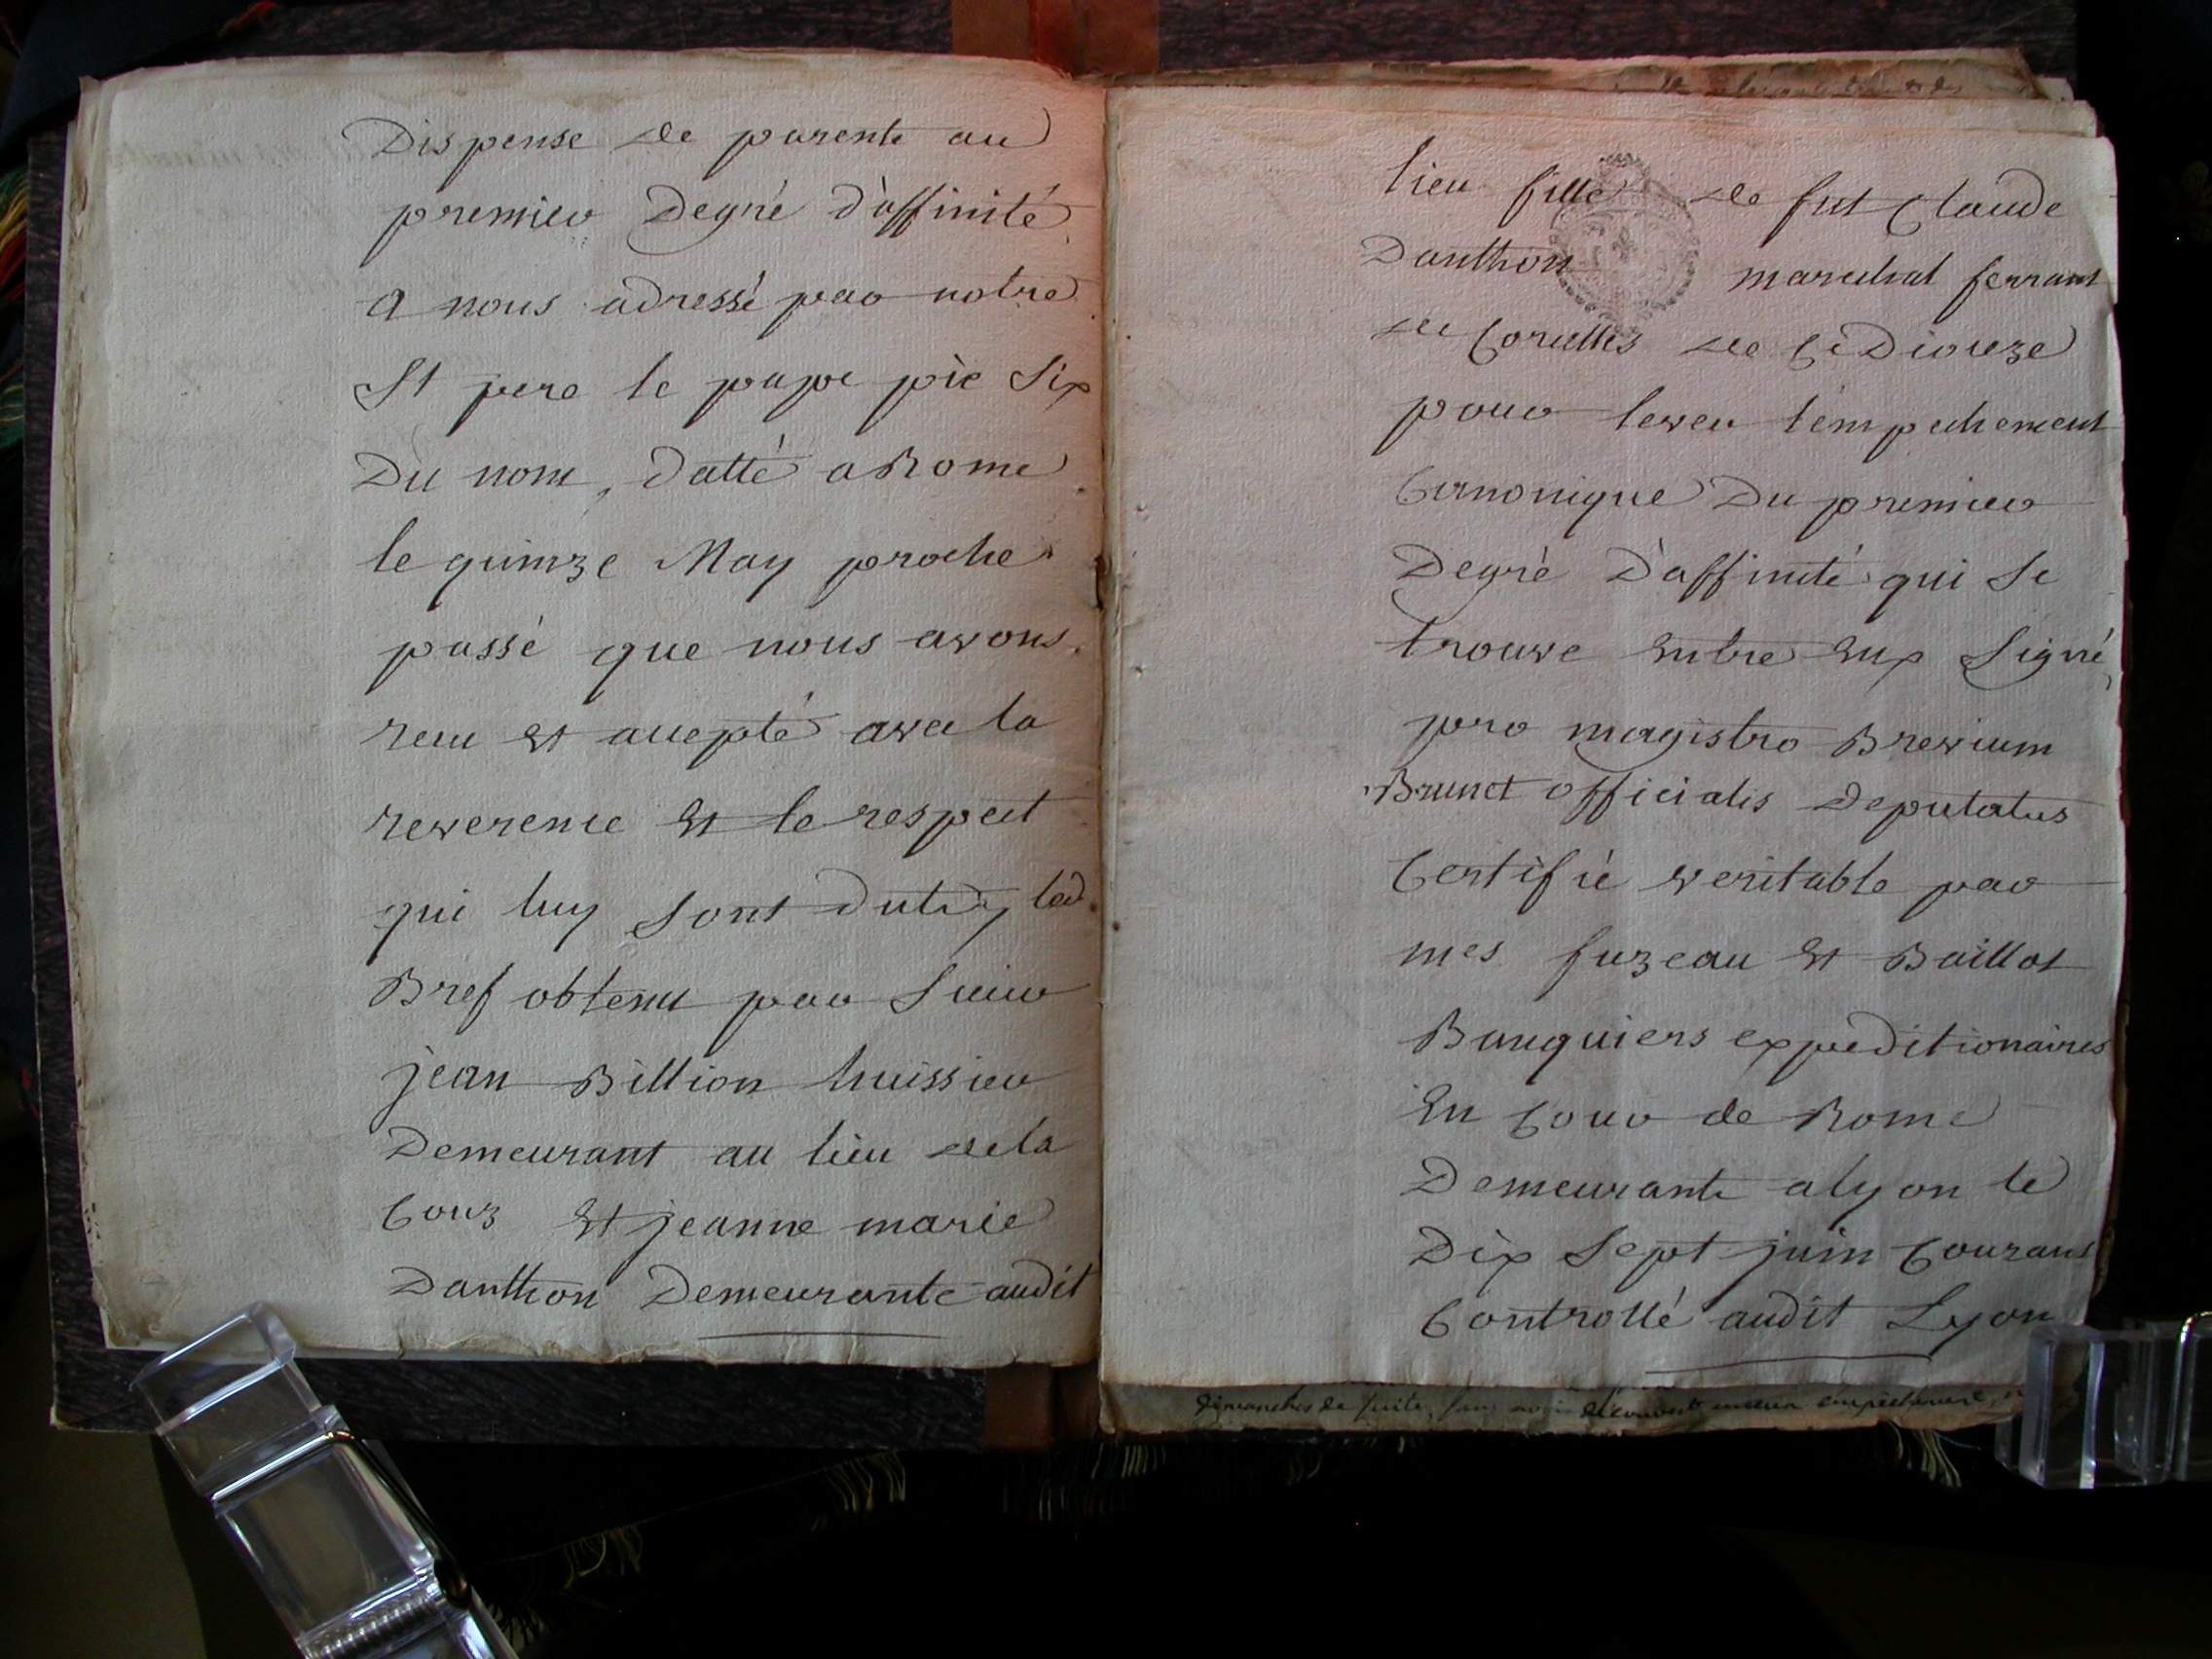 Dispense de parente au
premier Degré d'affinité
a nous adressé par notre
St pere le pape pie Six
Du nom, datté a Rome
le quinze May proche
passé que nous avons
recu Et accepté avec la
reverence Et le respect
qui luy sont duts, led
Bref obtenu par Sieur
jean Billion huissier
Demeurant au lieu dela
Cour Et jeanne marie
Danthon Demeurante audit
lieu fille de fut Claude
Danthon marechal ferrant
de Corcelles de ce Dioceze
pour lever l'empechement
Canonique Du premier
Degré D'affinité qui Se
trouve Entre Eux Signé
pro magistro Brevium
Brunet officialis Deputatus
Certifié veritable par
mes fuzeau Et Baillot
Banquiers expeditionaires
En Cour de Rome
Demeurants a lyon le
Dix Sept juin Courant
Controllé audit Lyon
dimanches de suite, sans avoir découvert aucun empêchement,